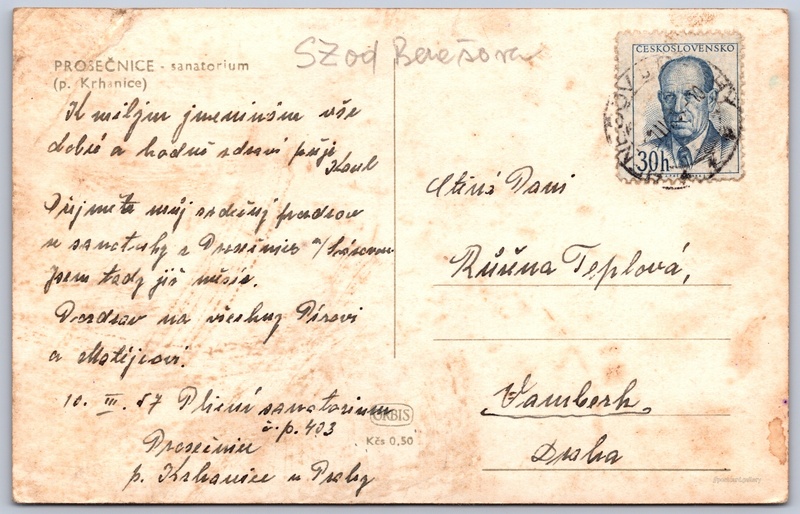 PROSEČNICE - sanatorium
(p. Krhanice)
SZ od Benešova
K milým jmeninám vše
dobré a hodně zdraví přeje
Karel
Přijměte můj srdečný pozdrav
ze sanatorky z Prosečnice n/Sázavou
jsem tady již měsíc.
Pozdrav na všechny Pírovi
a Matějcovi.
10. III. 57 Plicní sanatorium
č.p. 403
Prosečnice
p. Krhanice u Prahy
ORBIS
Kčs 0,50
ČESKOSLOVENSKO
30h
Ctěná Paní
Růžena Teplová,
Vamberk,